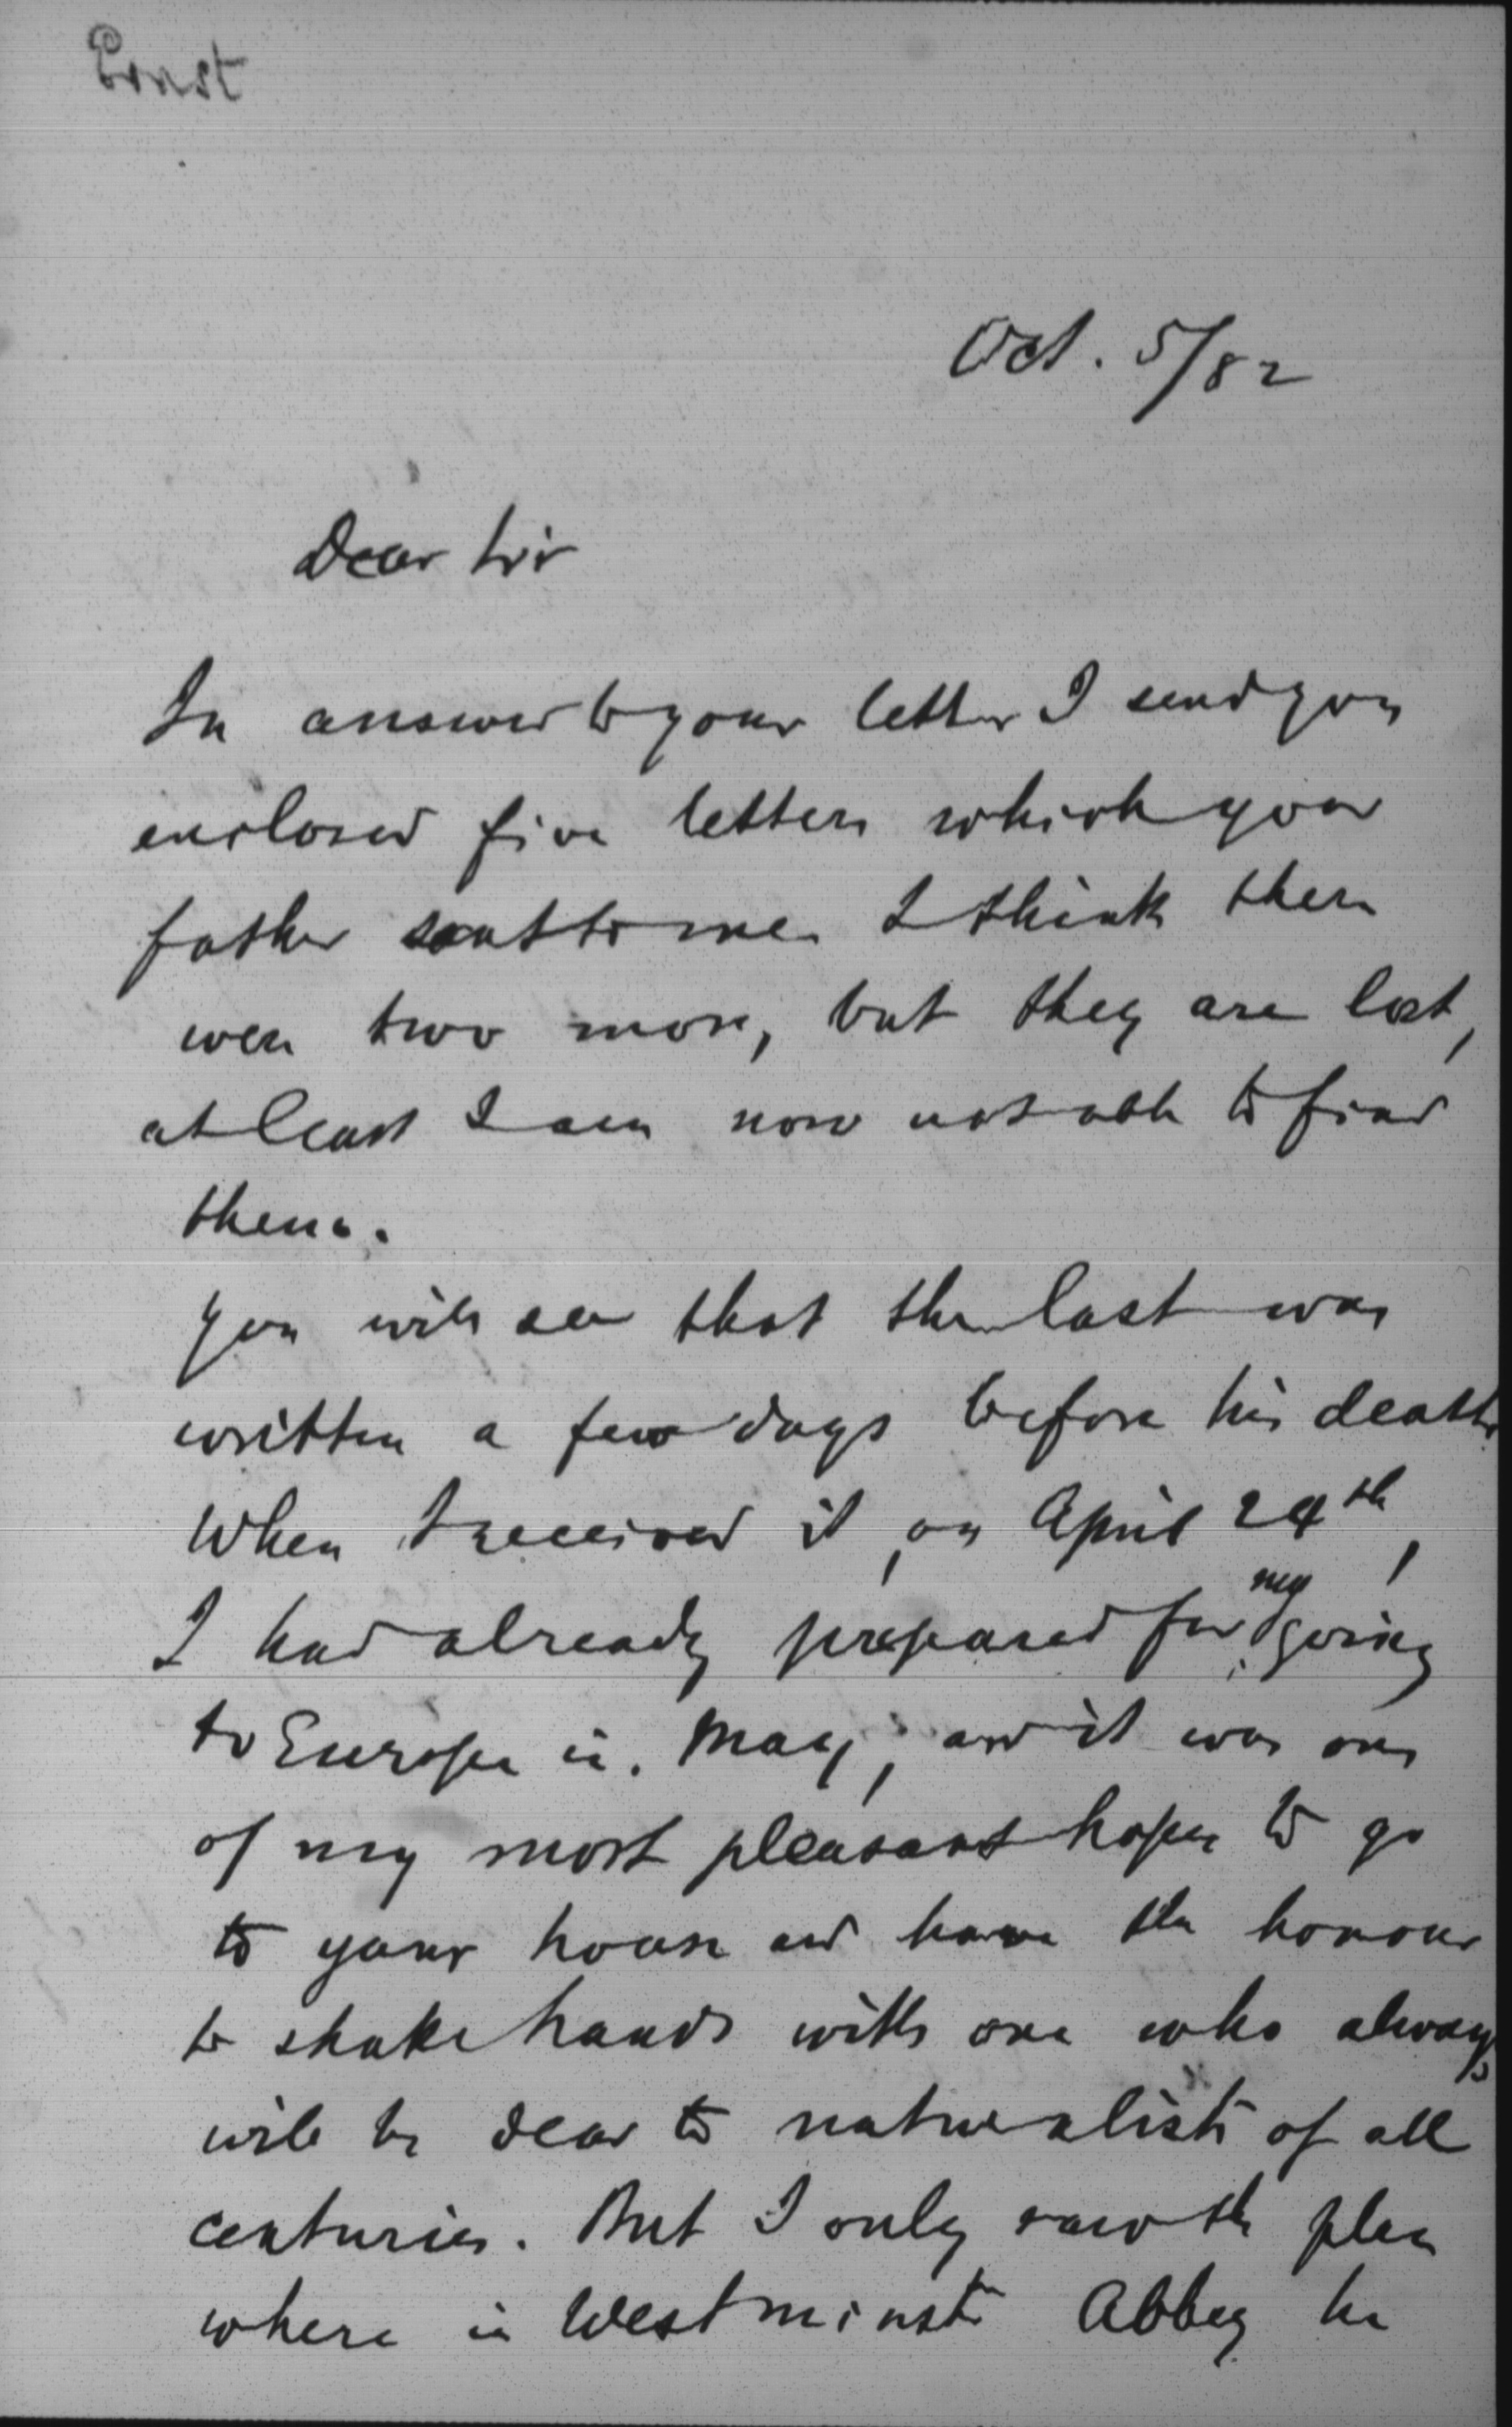 Ernst
Oct. 5/82
Dear Sir
In answer to your letter I send you
enclosed five letters which your
father sent to me. I think there
were two more, but they are lost,
at least I am now not able to find
them.
You will see that the last was
written a few days before his death.
When I received it, on April 24th,
my
I had already prepared for going
to Europe in May, and it was one
of my most pleasant hopes to go
to your house and have the honour
to shake hands with one who always
will be dear to naturalists of all
centuries. But I only saw the place
where in Westminster Abbey he